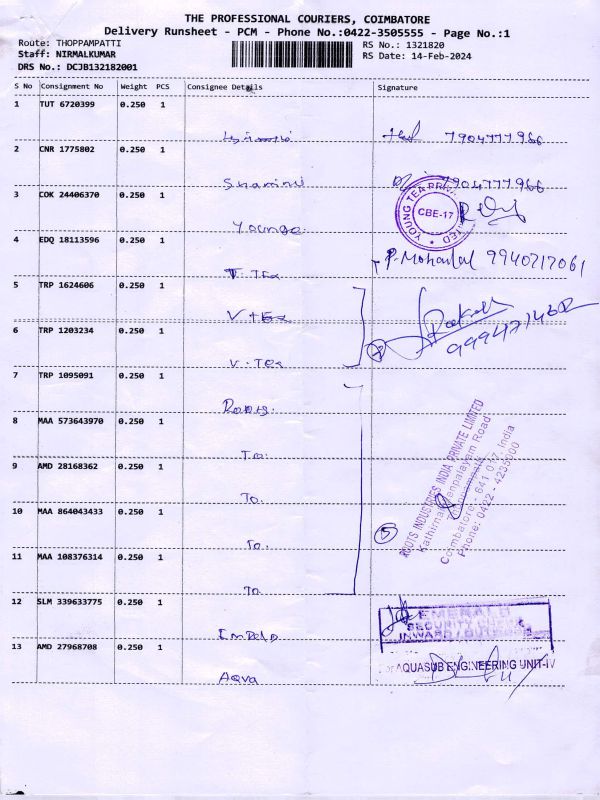 THE PROFESSIONAL COURIERS, COIMBATORE
Delivery Runsheet - PCM - Phone No.:0422-3505555 - Page No.:1
Route: THOPPAMPATTI RS No.: 1321820
Staff: NIRMALKUMAR RS Date: 14-Feb-2024
DRS No.: DCJB132182001
S No Consignment No Weight PCS Consignee Details Signature
1 TUT 6720399 0.250 1
7904777966
2 CNR 1775802 0.250 1
7904777966
3 COK 24406370 0.250 1
Younge
YOUNG TEA PRIVATE LIMITED
CBE-17
4 EDQ 18113596 0.250 1
T. Tea P. Mohanlal 9940717061
5 TRP 1624606 0.250 1
V tea
6 TRP 1203234 0.250 1
V. Tea
7 TRP 1095091 0.250 1
Roots.
8 MAA 573643970 0.250 1
9 AMD 28168362 0.250 1
To.
10 MAA 864043433 0.250 1
To.
5
11 MAA 108376314 0.250 1
To
ROOTS INDUSTRIES INDIA PRIVATE LIMITED
Coimbatore - 641 017, India
Phone: 0422 - 4235000
12 SLM 339633775 0.250 1
EMERALD
SECURITY CHECK
INWARD / OUTWARD
13 AMD 27968708 0.250 1
Aqva
For AQUASUB ENGINEERING UNIT-IV